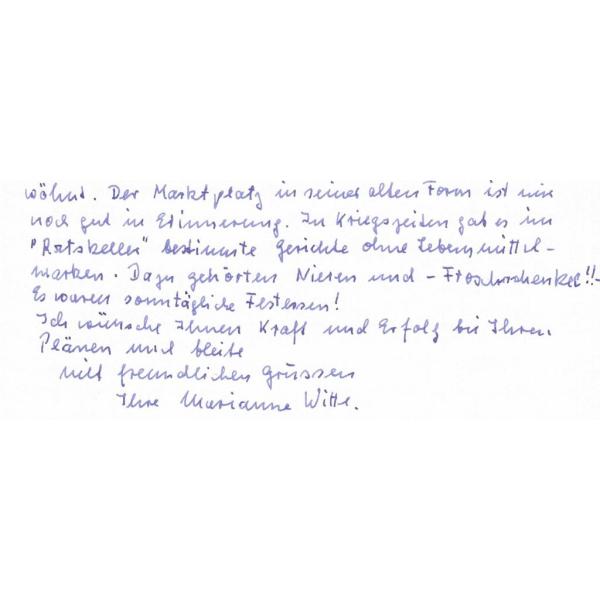 wöhnt. Der Marktplatz in seiner alten Form ist mir
noch gut in Erinnerung. In Kriegszeiten gab es im
"Ratskeller" bestimmte Gerichte ohne Lebensmittel-
marken. Dazu gehörten Nieren und - Froschschenkel!!-
Es waren sonntägliche Festessen!
Ich wünsche Ihnen Kraft und Erfolg bei Ihren
Plänen und bleibe
mit freundlichen Grüssen
Ihre Marianne Witte.